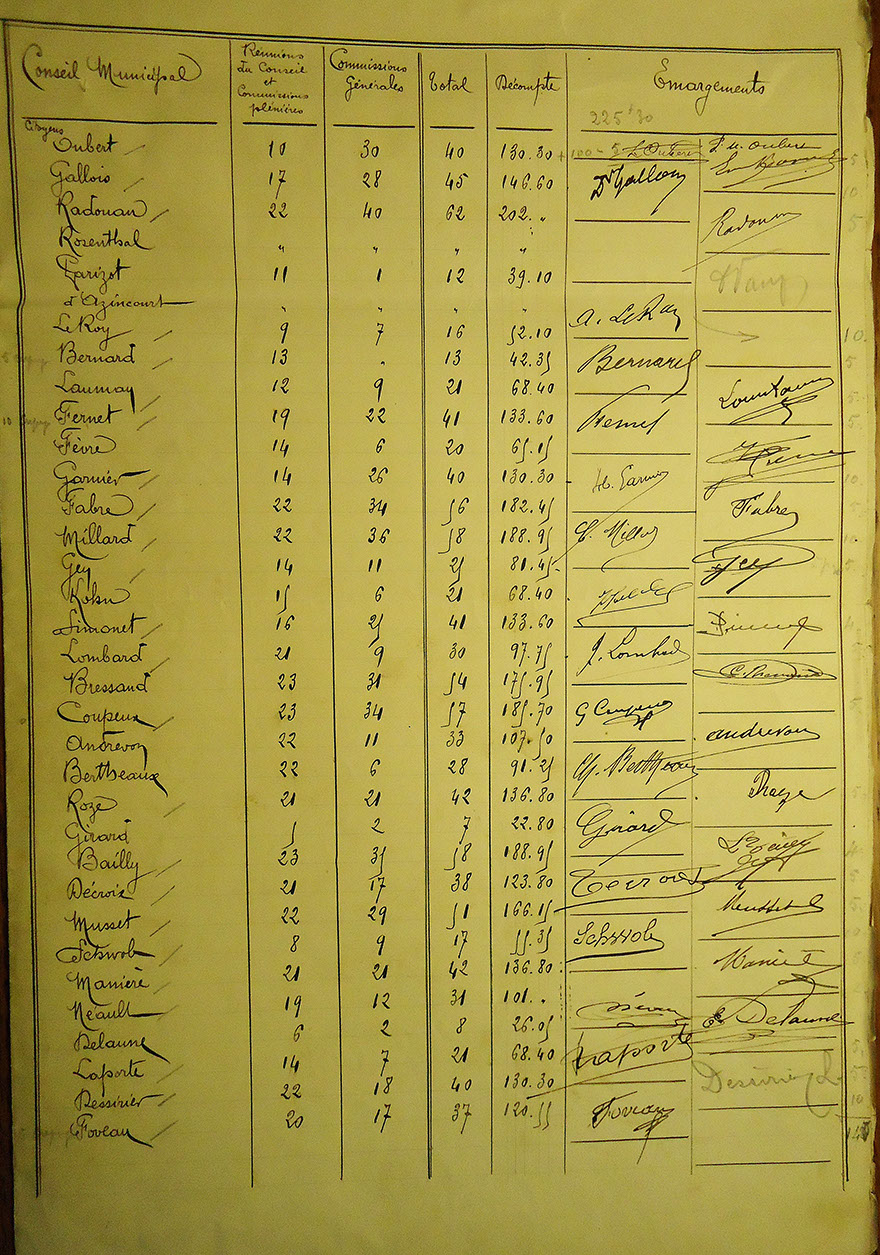 Conseil Municipal Réunions du Conseil et Commissions plénières Commissions Générales Total Décompte Emargements
225 30
Citoyens
Oubert 10 30 40 130.30 + 100 -
Gallois 17 28 45 146.60 Dr Gallois
Radouan 22 40 62 202. „ Radouan
Rosenthal „ „ „ „
Parizot 11 1 12 39.10
d'Azincourt „ „ „ „
Le Roy 9 7 16 52.10 A. Le Roy
Bernard 13 „ 13 42.35 Bernard
Launay 12 9 21 68.40
Fernet 19 22 41 133.60 Fernet
Fèvre 14 6 20 65.15
Garnier 14 26 40 130.30 Garnier
Fabre 22 34 56 182.45 Fabre
Millard 22 36 58 188.95 Millard
Gey 14 11 25 81.45 Gey
Kohn 15 6 21 68.40
Simonet 16 25 41 133.60
Lombard 21 9 30 97.75 J. Lombard
Bressand 23 31 54 175.95
Coupeux 23 34 57 185.70 G Coupeux
Andrevon 22 11 33 107.50 Andrevon
Bertheaux 22 6 28 91.25 Ch. Bertheaux
Roze 21 21 42 136.80
Girard 5 2 7 22.80 Girard
Bailly 23 35 58 188.95
Décroix 21 17 38 123.80
Musset 22 29 51 166.15 Musset
Schwob 8 9 17 55.35 Schwob
Manière 21 21 42 136.80 Manière
Néault 19 12 31 101. „
Delaune 6 2 8 26.05 E. Delaune
Laporte 14 7 21 68.40 Laporte
Dessirier 22 18 40 130.30 Dessirier
Foveau 20 17 37 120.55 Foveau